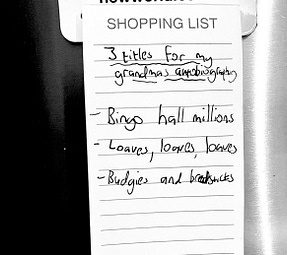 SHOPPING LIST
3 titles for my
grandmas autobiography
- Bingo hall millions
- Loaves, loaves, loaves
- Budgies and breadsticks